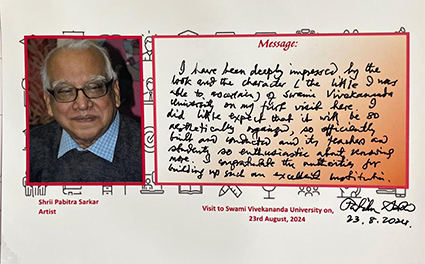 Message:
I have been deeply impressed by the
look and the character & the little I was
able to ascertain of Swami Vivekananda
University on my first visit here. I
did little expect that it will be so
aesthetically organized, so efficiently
built and conducted and its teachers and
students so enthusiastic about learning
more. I congratulate the authorities for
building up such an excellent institution.
Shrii Pabitra Sarkar
Artist
Visit to Swami Vivekananda University on,
23rd August, 2024
23.8.2024